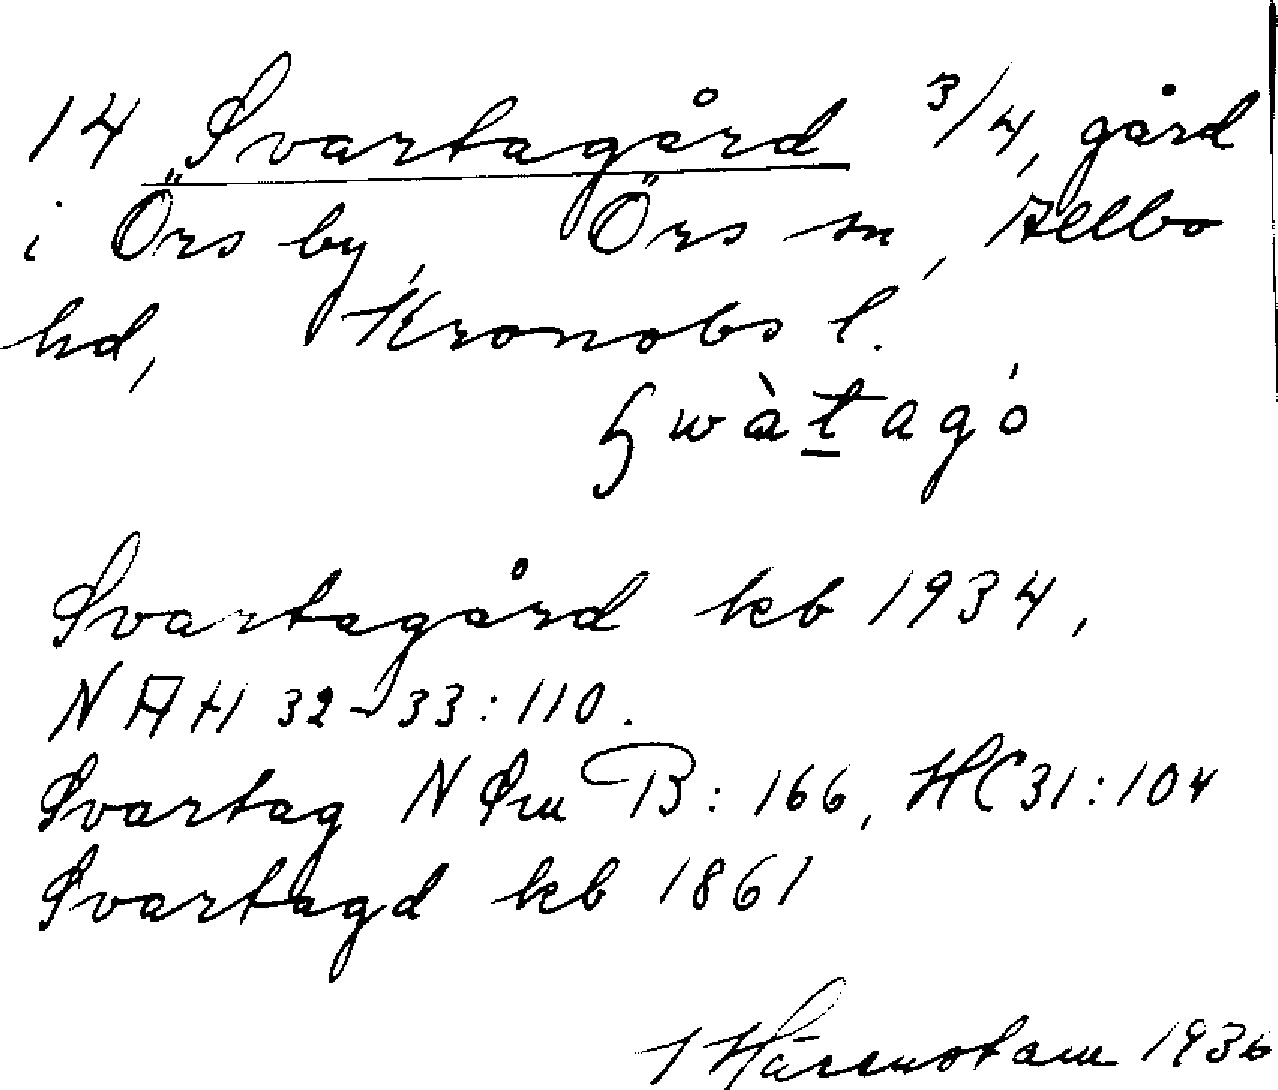 14 Svartagård 3/4, gård
i Örs by, Örs sn, Allbo
hd, Kronobs l.
ʂwàtagó
Svartagård kb 1934,
NAH 32-33:110.
Svartag NSm B: 166, HC31:104
Svartagd kb 1861
J Härenstam 1936